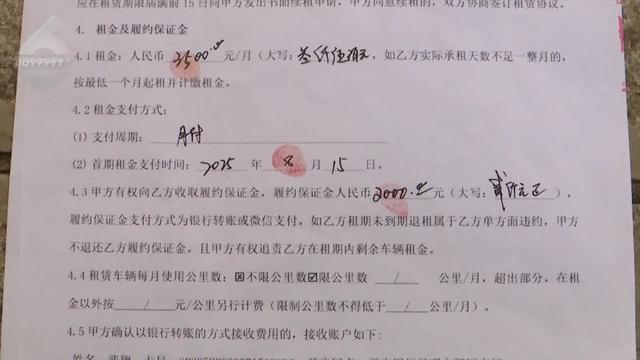 应在租赁期限届满前 15 日向甲方发出书面续租申请，甲方同意续租的，双方协商签订租赁协议。
4. 租金及履约保证金
4.1 租金：人民币 3500.00 元/月（大写：叁仟伍佰元，如乙方实际承租天数不足一整月的，
按最低一个月起租并计缴租金。
4.2 租金支付方式：
(1) 支付周期： 月付
(2) 首期租金支付时间： 2025 年 8 月 15 日。
4.3 甲方有权向乙方收取履约保证金，履约保证金人民币 2000.00 元（大写：贰仟元正），
履约保证金支付方式为银行转账或微信支付。如乙方租期未到期退租属于乙方单方面违约，甲方
不退还乙方履约保证金。且甲方有权追责乙方在租期内剩余车辆租金。
4.4 租赁车辆每月使用公里数：☒不限公里数☑限公里数 / 公里/月，超出部分，在租
金以外按 / 元/公里另行计费（限制公里数不得低于 / 公里）。
4.5 甲方确认以银行转账的方式接收费用的，接收账户如下：
6099999